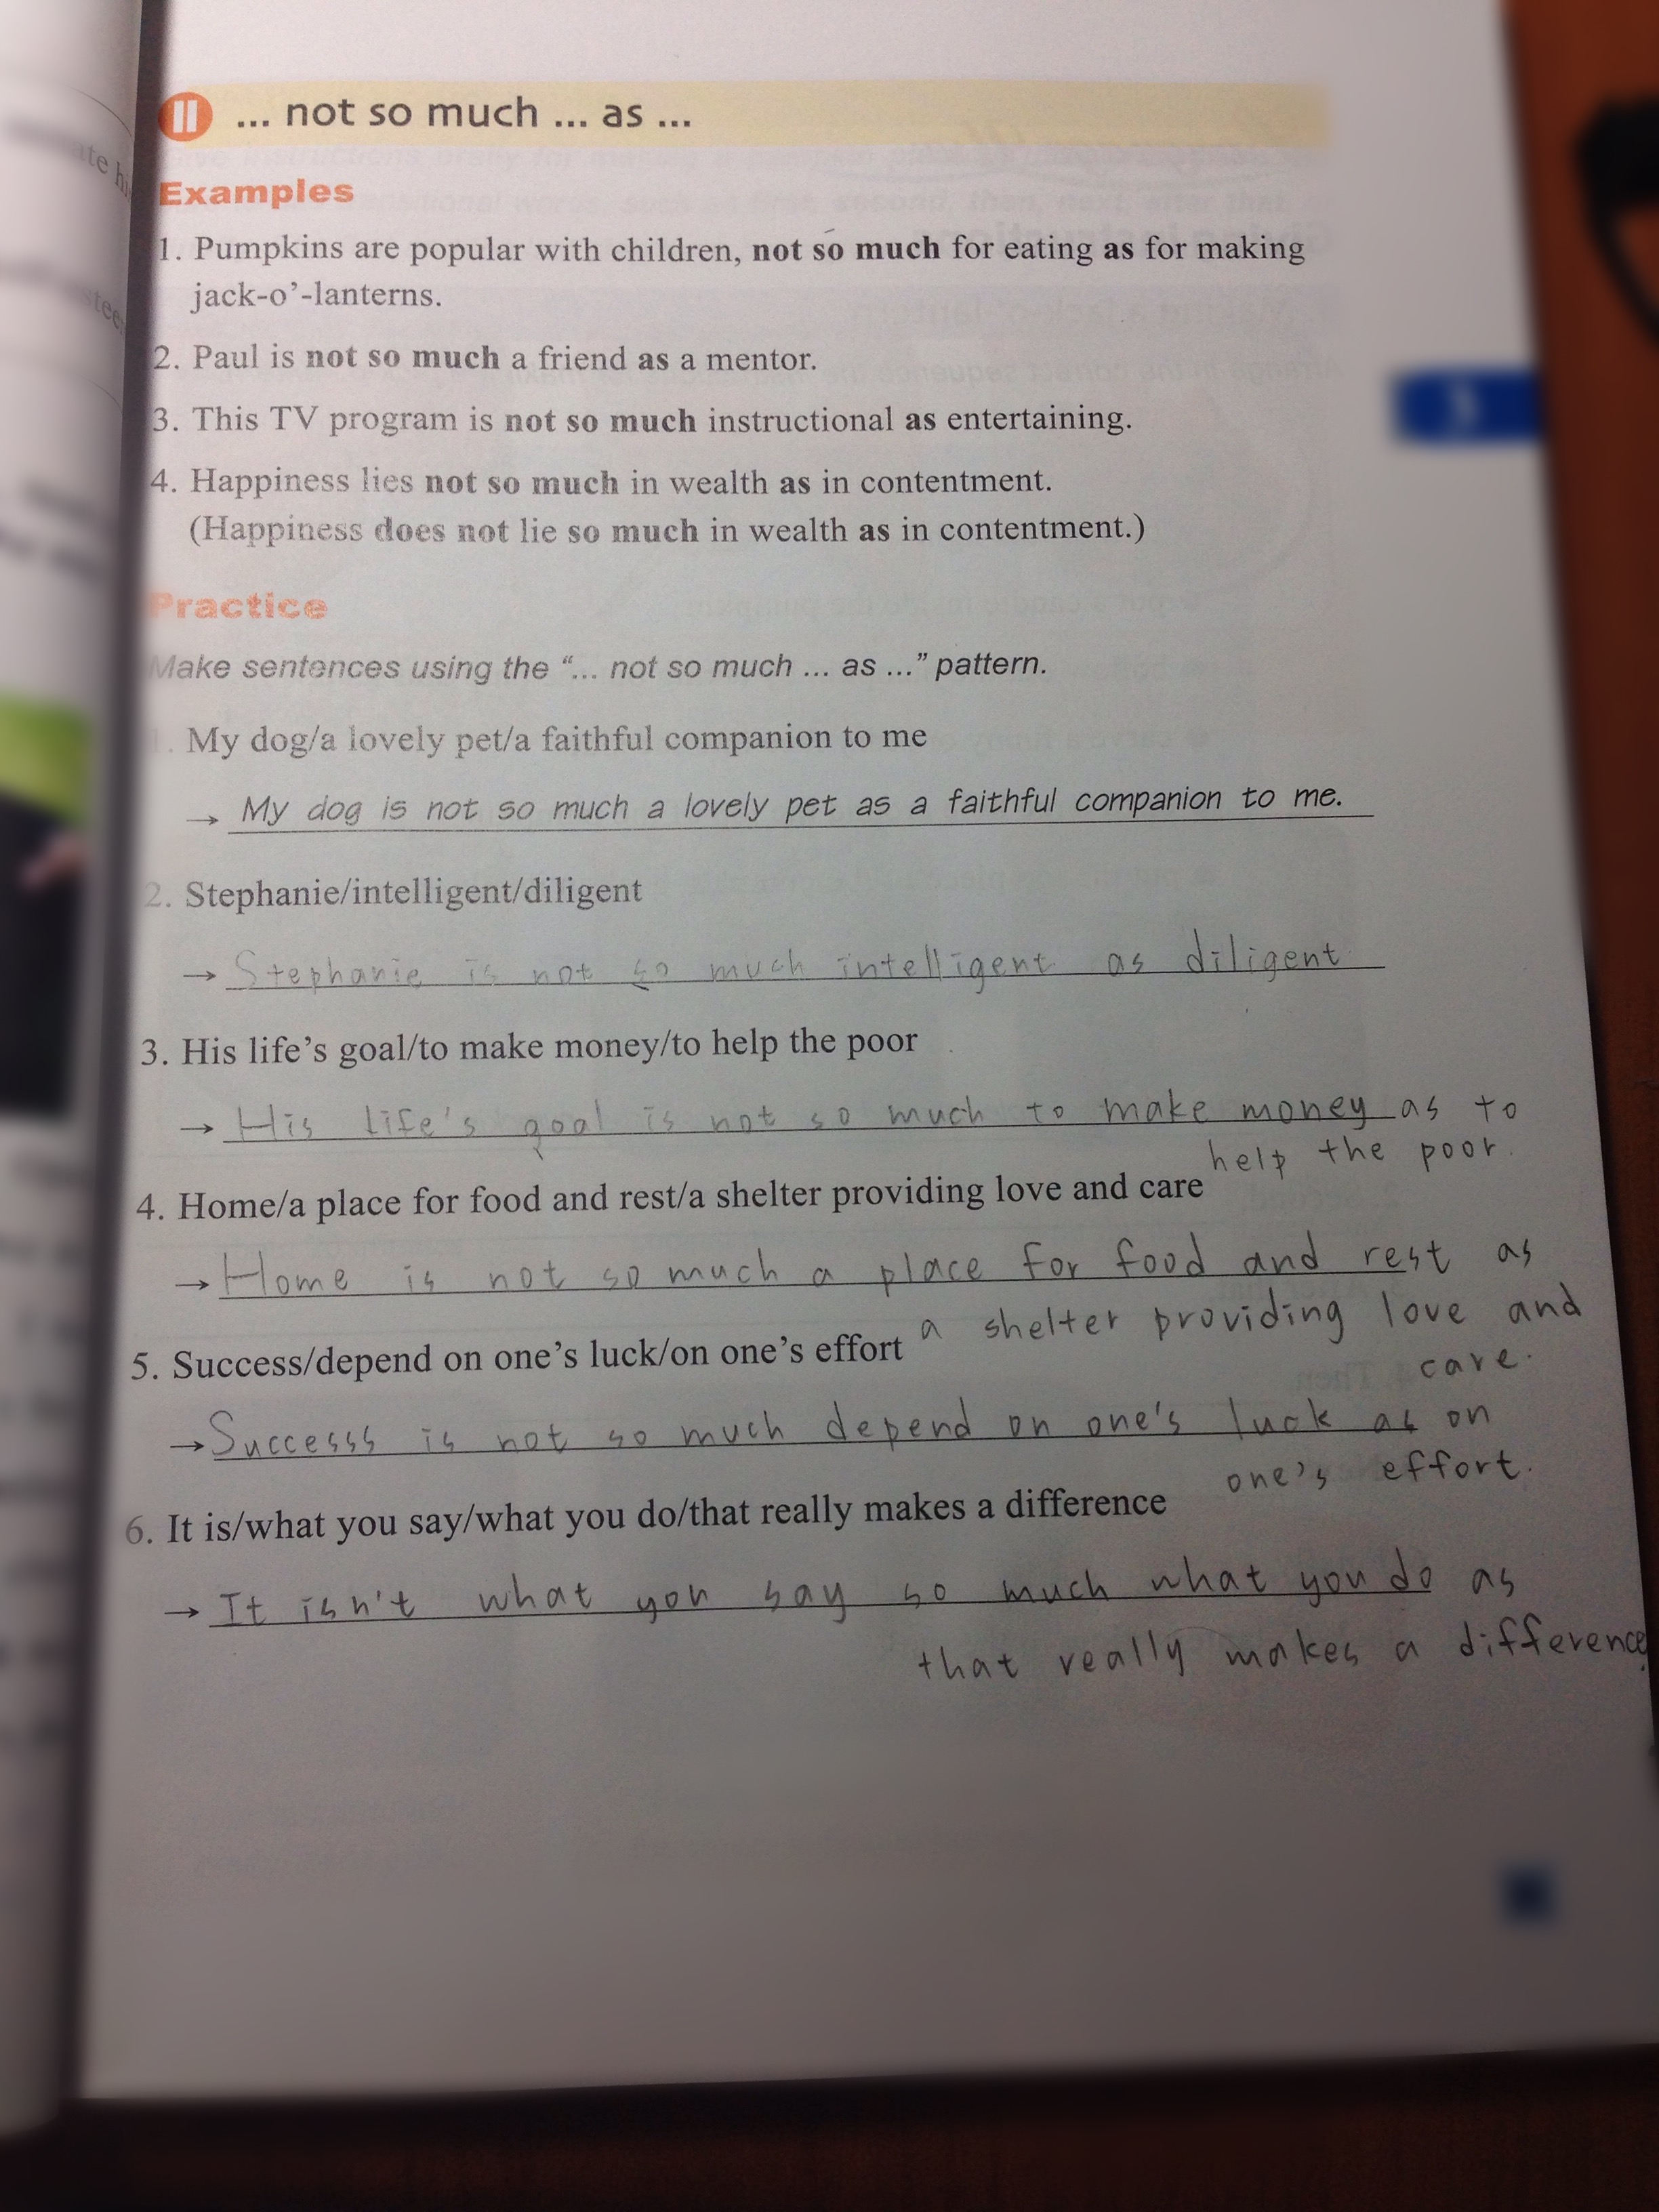 II ... not so much ... as ...
Examples
1. Pumpkins are popular with children, not so much for eating as for making
jack-o’-lanterns.
2. Paul is not so much a friend as a mentor.
3. This TV program is not so much instructional as entertaining.
4. Happiness lies not so much in wealth as in contentment.
(Happiness does not lie so much in wealth as in contentment.)
Practice
Make sentences using the “... not so much ... as ...” pattern.
1. My dog/a lovely pet/a faithful companion to me
→ My dog is not so much a lovely pet as a faithful companion to me.
2. Stephanie/intelligent/diligent
→ Stephanie is not so much intelligent as diligent
3. His life’s goal/to make money/to help the poor
→ His life's goal is not so much to make money as to
help the poor.
4. Home/a place for food and rest/a shelter providing love and care
→ Home is not so much a place for food and rest as
a shelter providing love and
care.
5. Success/depend on one’s luck/on one’s effort
→ Successs is not so much depend on one's luck as on
one's effort.
6. It is/what you say/what you do/that really makes a difference
→ It isn't what you say so much what you do as
that really makes a difference.
3